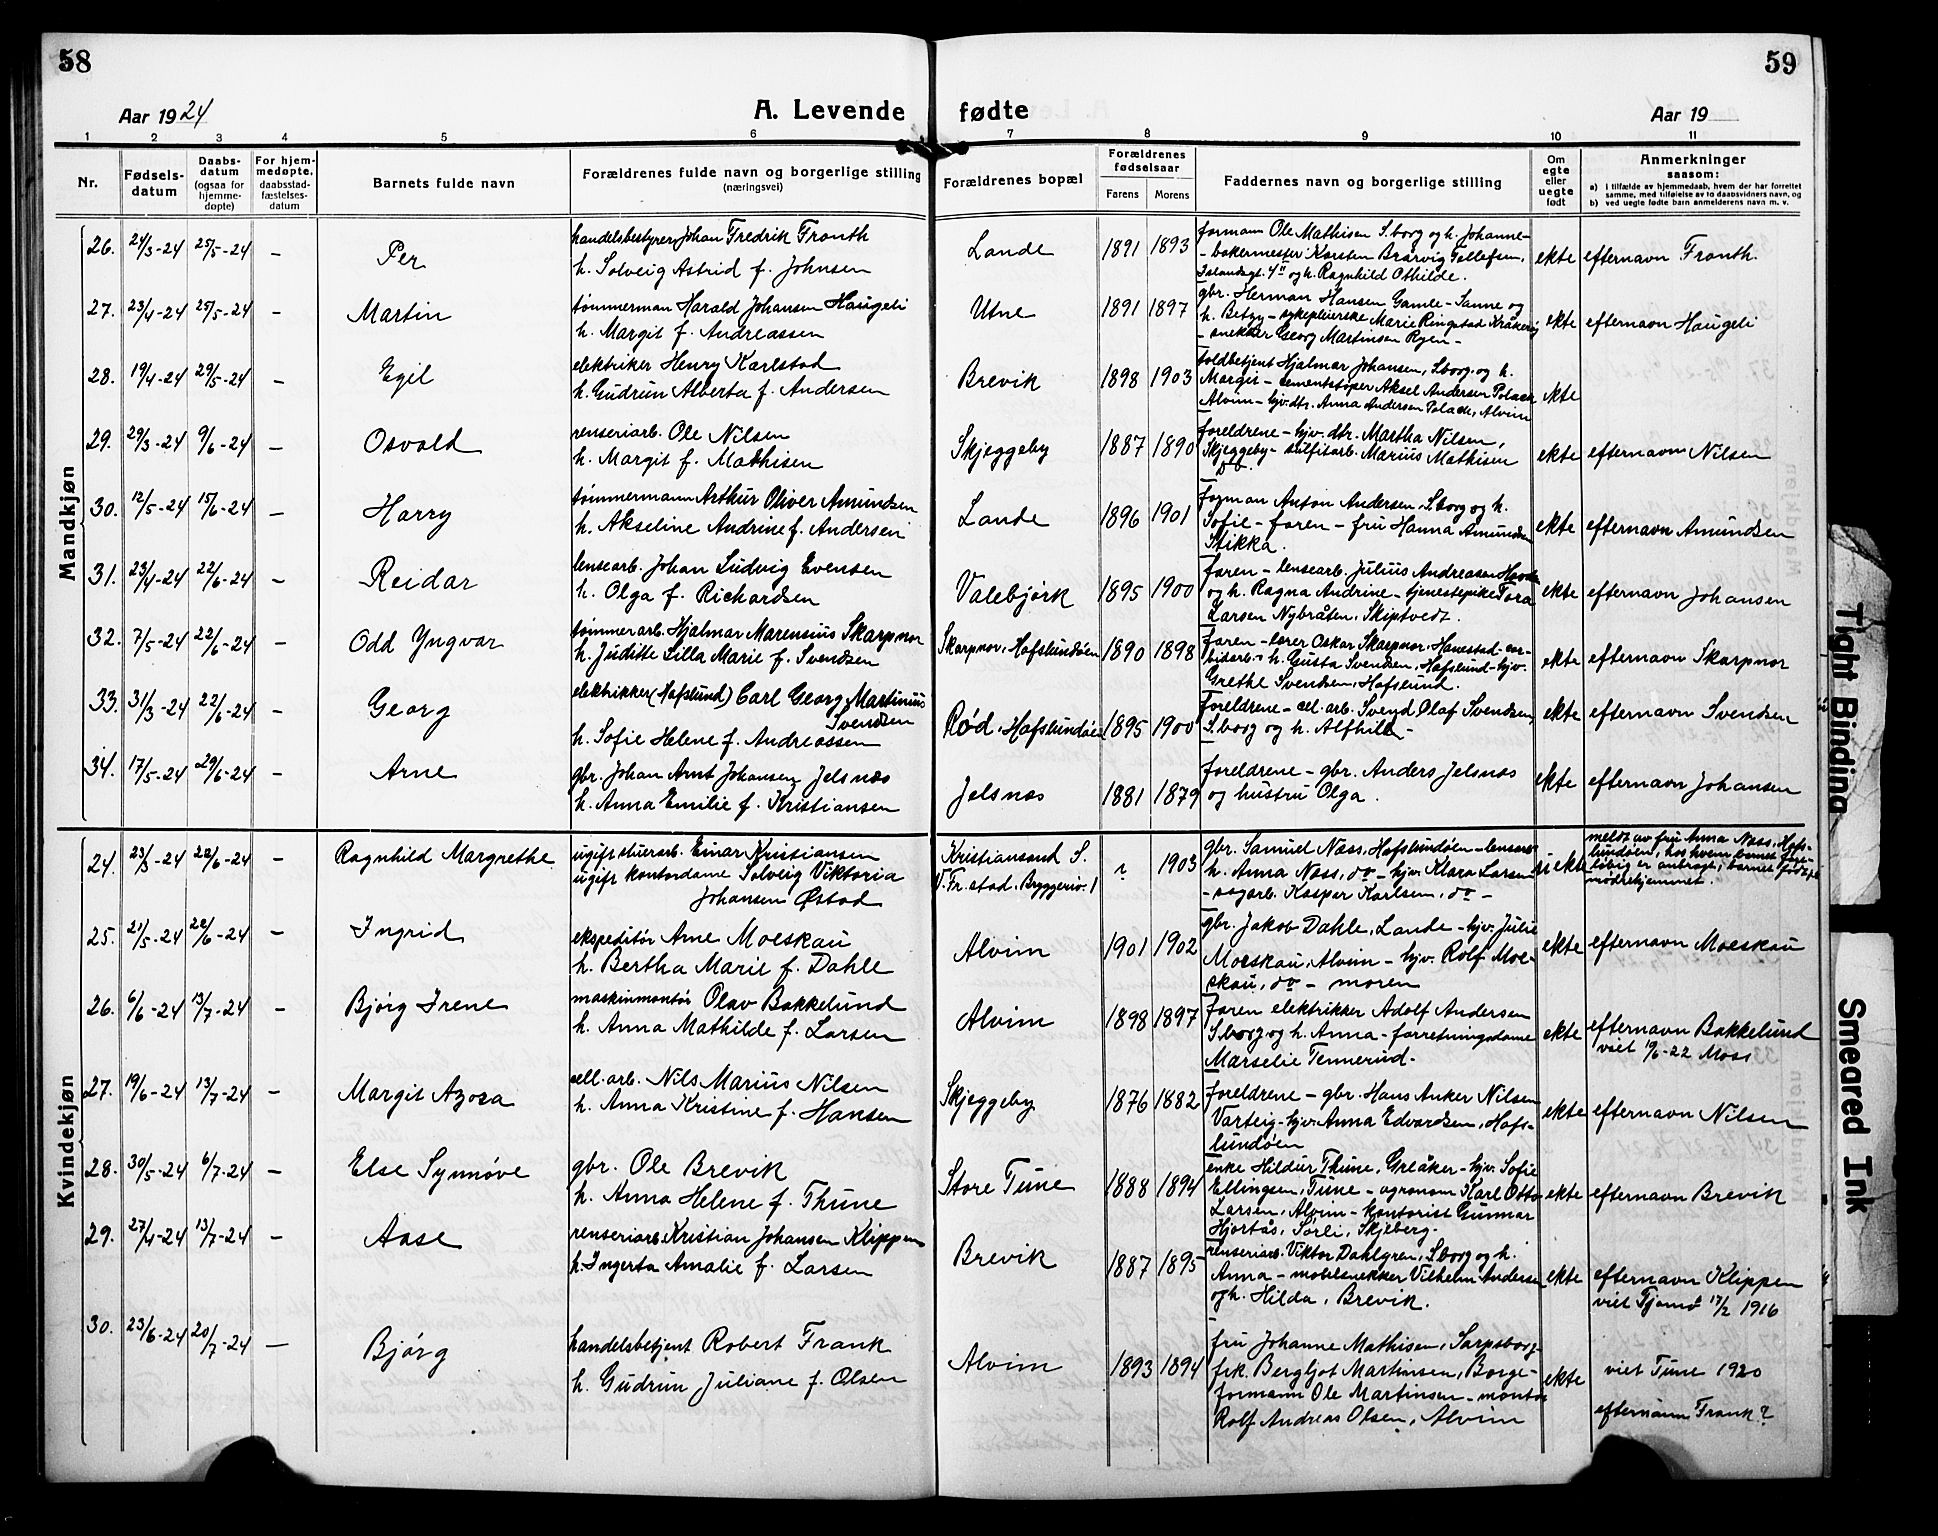 58
59
Aar 1924
A. Levende fødte
Aar 19
1 2 3 4 5 6 7 8 9 10 11
Nr.
Fødsels-
datum
Daabs-
datum
(ogsaa for
hjemme-
døpte)
For hjem-
medøpte,
daabsstad-
fæstelses-
datum
Barnets fulde navn
Forældrenes fulde navn og borgerlige stilling
(næringsvei)
Forældrenes bopæl
Forældrenes
fødselsaar
Farens Morens
Faddernes navn og borgerlige stilling
Om
egte
eller
uegte
født
Anmerkninger
saasom:
a) i tilfælde av hjemmedaab, hvem der har forrettet
samme, med tilføielse av to daabsvidners navn, og
b) ved uegte fødte barn anmelderens navn m. v.
Mandkjøn
26. 24/3-24 25/5-24 – Per
handelsbestyrer Johan Fredrik Fronth
h. Solveig Astrid f. Johnsen
Lande 1891 1893
formann Ole Mathisen S.borg og h. Johanne –
– bakermester Karsten Brarvig Tollefsen,
Islandsgt. 4" og h. Ragnhild Othilde.
ekte efternavn Fronth.
27. 23/4-24 25/5-24 – Martin
tømmerman Harald Johansen Haugeli
h. Margit f. Andreassen
Utne 1891 1897
gbr. Herman Hansen Gamle-Sanne og
h. Betzy – sykepleierske Marie Ringstad Kråkerøy
– snekker Georg Martinsen Ryen –
ekte efternavn Haugeli
28. 19/4-24 29/5-24 – Egil
elektriker Henry Karlstad
h. Gudrun Alberta f. Andersen
Brevik 1898 1903
toldbetjent Hjalmar Johansen, S.borg. og h.
Margit – sementstøper Aksel Andersen Polack
Alvim – hjv. dtr. Anna Andersen Polack, Alvim
ekte
29. 29/3-24 9/6-24 – Osvald
renseriarb. Ole Nilsen
h. Margit f. Mathisen
Skjeggeby 1887 1890
foreldrene – hjv. dtr. Martha Nilsen,
Skjeggeby – sulfitarb. Marius Mathisen
do.
ekte efternavn Nilsen
30. 12/5-24 15/6-24 – Harry
tømmermann Arthur Oliver Amundsen
h. Akseline Andrine f. Andersen
Lande 1896 1901
Forman Anton Andersen, S.borg og h.
Sofie – faren – fru Hanna Amundsen
Stikka.
ekte efternavn Amundsen
31. 23/4-24 22/6-24 – Reidar
lensearb. Johan Ludvig Evensen
h. Olga f. Richardsen
Valebjørk 1895 1900
faren – lensearb. Julius Andreasen
og h. Ragna Andrine – tjenestepike Tora
Larsen Nybråten, Skiptvedt.
ekte efternavn Johansen
32. 7/5-24 22/6-24 – Odd Yngvar
tømmerarb. Hjalmar Marensius Skarpnor
h. Juditte Lilla Marie f. Svendsen
Skarpnor, Hafslundsøen 1890 1898
faren – lærer Oskar Skarpnor, Hanestad – car-
bidarb. – h. Gusta Svendsen, Hafslund – hjv.
Grethe Svendsen, Hafslund.
ekte efternavn Skarpnor
33. 31/3-24 22/6-24 – Georg
elektrikker (Hafslund) Carl Georg Martinius
Svendsen
h. Sofie Helene f. Andreassen
Rød, Hafslundsøen 1895 1900
foreldrene – cel. arb. Svend Olaf Svendsen,
S.borg og h. Alfhild –
ekte efternavn Svendsen
34. 17/5-24 29/6-24 – Arne
gbr. Johan Arnt Johansen Jelsnæs
h. Anna Emilie f. Kristiansen
Jelsnæs 1881 1879
foreldrene – gbr. Anders Jelsnæs
og hustru Olga.
ekte efternavn Johansen
Kvindekjøn
24. 23/3-24 22/6-24 – Ragnhild Margrethe
ugift stuerarb. Einar Kristiansen
ugift kontordame Solveig Viktoria
Johansen Østad
Kristiansand S.
V. Fr.stad, Bryggeriv. 1
? 1903
gbr. Samuel Næss, Hafslundsøen –
h. Anna Næss, do – hjv. Klara Larsen
– sagarb. Kasper Karlsen, do –
uekte
meldt av fru Anna Næss, Hafs-
lundsøen, hos hvem barnet fore-
løbig er antragt; barnet født på
mødrehjemmet.
25. 21/5-24 22/6-24 – Ingrid
ekspeditør Arne Moeskau
h. Bertha Marie f. Dahle
Alvim 1901 1902
gbr. Jakob Dahle, Lande – hjv. Julie
Moeskau, Alvim – hjv. Rolf Moe-
skau, do – moren
ekte efternavn Moeskau
26. 6/6-24 13/7-24 – Bjørg Irene
maskinmontør Olav Bakkelund
h. Anna Mathilde f. Larsen
Alvim 1898 1897
faren elektrikker Adolf Andersen
S.borg og h. Anna – forretningsdame
Marselie Tennerud.
ekte efternavn Bakkelund
viet 19/6-22 Moss
27. 19/6-24 13/7-24 – Margit Azora
cell. arb. Nils Marius Nilsen
h. Anna Kristine f. Hansen
Skjeggeby 1876 1882
foreldrene – gbr. Hans Anker Nilsen
Varteig – hjv. Anna Edvardsen, Hafs-
lundsøen
ekte efternavn Nilsen
28. 30/5-24 6/7-24 – Else Synnøve
gbr. Ole Brevik
h. Anna Helene f. Thune
Store Tune 1888 1894
enke Hildur Thune, Greåker – hjv. Sofie
Ellingsen, Tune – agronom Karl Otto
Larsen, Alvim – kontorist Gunnar
Hjortås, Sørli, Skjeberg.
ekte efternavn Brevik
29. 27/4-24 13/7-24 – Aase
renseriarb. Kristian Johansen Klippen
h. Ingerta Amalie f. Larsen
Brevik 1887 1895
renseriarb. Viktor Dahlgren, S.borg og h.
Anna – møbelsnekker Vilhelm Andersen
og h. Hilda, Brevik.
ekte efternavn Klippen
viet Tjømø 17/2 1916
30. 23/6-24 20/7-24 – Bjørg
handelsbetjent Robert Frank
h. Gudrun Juliane f. Olsen
Alvim 1893 1894
fru Johanne Mathisen, Sarpsborg
frk. Bergljot Martinsen, Borge –
formann Ole Martinsen – montør
Rolf Andreas Olsen, Alvim
ekte viet Tune 1920
efternavn Frank?
Tight Binding
Smeared Ink